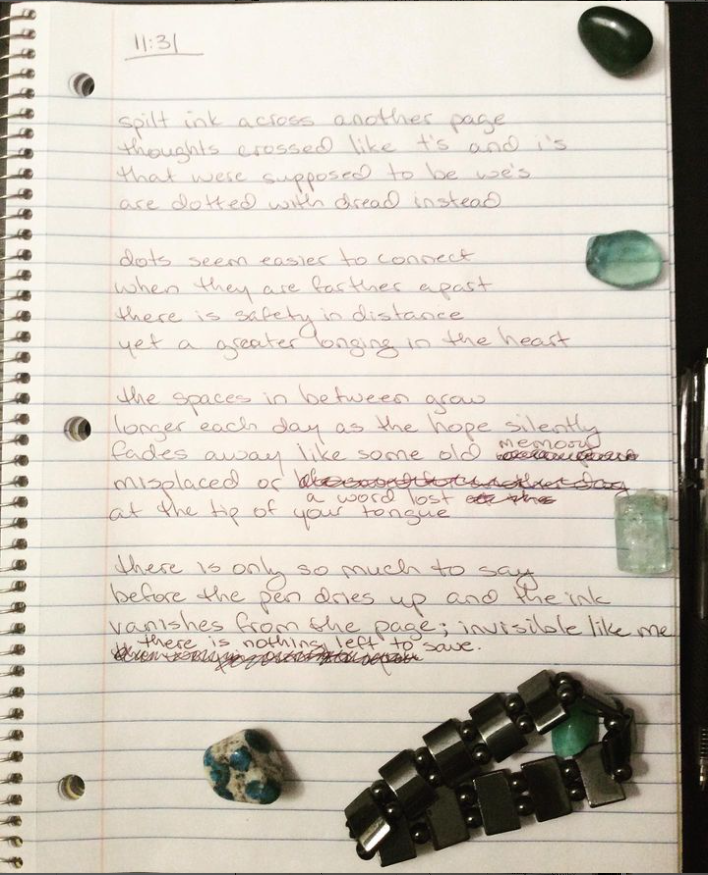 11:31
spilt ink across another page
thoughts crossed like t's and i's
that were supposed to be we's
are dotted with dread instead
dots seem easier to connect
when they are farther apart
there is safety in distance
yet a greater longing in the heart
the spaces in between grow
longer each day as the hope silently
fades away like some old memory
misplaced or
a word lost
at the tip of your tongue
there is only so much to say
before the pen dries up and the ink
vanishes from the page; invisible like me
there is nothing left to save.